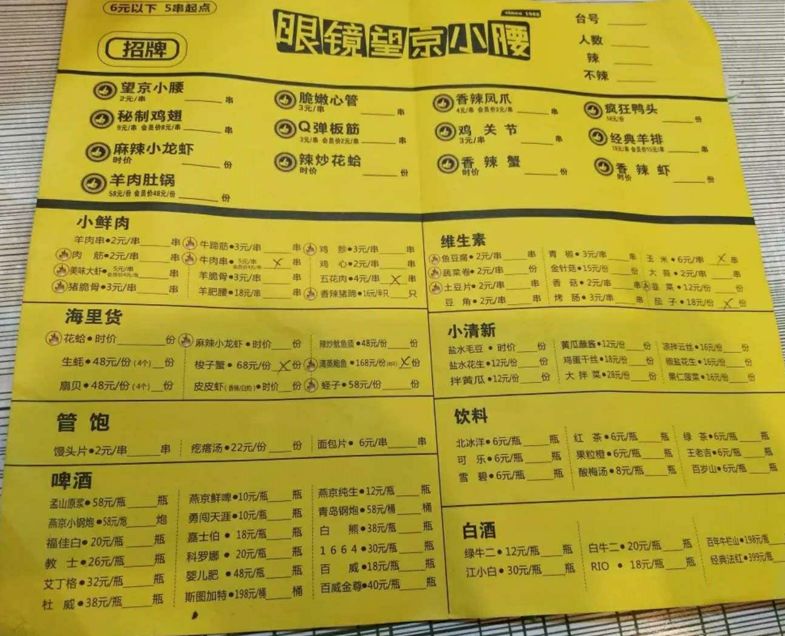 6元以下 5串起点
招牌
眼镜望京小腰
since 1988
台号
人数
辣
不辣
望京小腰
2元/串 串
秘制鸡翅
9元/串 会员价8元/串 串
麻辣小龙虾
时价 份
羊肉肚锅
58元/份 会员价48元/份 份
脆嫩心管
3元/串 串
Q弹板筋
3元/串 会员价2元/串 串
辣炒花蛤
时价 份
香辣凤爪
4元/串 会员价3元/串 串
鸡关节
3元/串 串
香辣蟹
时价 份
疯狂鸭头
份
经典羊排
串
香辣虾
时价 份
小鲜肉
羊肉串•2元/串 串
肉筋•2元/串 串
美味大虾•5元/串 串
猪脆骨•3元/串 串
牛蹄筋•3元/串 串
牛肉串•5元/串 X 串
羊脆骨•3元/串 串
羊肥腰•18元/串 串
鸡胗•3元/串 串
鸡心•2元/串 串
五花肉•4元/串 X 串
香辣猪蹄•16元/只 只
维生素
鱼豆腐•2元/串 串
蔬菜卷•2元/串 份
土豆片•2元/串 串
豆角•2元/串 串
青椒•3元/串 串
金针菇•15元/份 份
香菇•2元/串 串
烤肠•3元/串 串
玉米•6元/串 X 串
大蒜•2元/串 串
韭菜•12元/份 份
茄子•18元/份 X 份
海里货
花蛤•时价 份
生蚝•48元/份(4个) 份
扇贝•48元/份(4个) 份
麻辣小龙虾•时价 份
梭子蟹•68元/份 X 份
皮皮虾(香辣/白灼)•时价 份
辣炒鱿鱼须•48元/份 份
清蒸鲍鱼•168元/份 X 份
蛏子•58元/份 份
小清新
盐水毛豆•时价 份
盐水花生•12元/份 份
拌黄瓜•12元/份 份
黄瓜蘸酱•12元/份 份
鸡蛋干丝•18元/份 份
大拌菜•28元/份 份
凉拌云丝•16元/份 份
椒盐花生•16元/份 份
果仁菠菜•16元/份 份
管饱
馒头片•2元/串 串
疙瘩汤•22元/份 份
面包片•6元/串 串
饮料
北冰洋•6元/瓶 瓶
可乐•6元/瓶 瓶
雪碧•6元/瓶 瓶
红茶•6元/瓶 瓶
果粒橙•6元/瓶 瓶
酸梅汤•8元/瓶 瓶
绿茶•6元/瓶 瓶
王老吉•6元/瓶 瓶
百岁山•6元/瓶 瓶
啤酒
孟山原浆•58元/瓶 瓶
燕京小钢炮•58元/炮 炮
福佳白•20元/瓶 瓶
教士•26元/瓶 瓶
艾丁格•32元/瓶 瓶
杜威•38元/瓶 瓶
燕京鲜啤•10元/瓶 瓶
勇闯天涯•10元/瓶 瓶
嘉士伯•18元/瓶 瓶
科罗娜•20元/瓶 瓶
婴儿肥•48元/瓶 瓶
斯图加特•198元/桶 桶
燕京纯生•12元/瓶 瓶
青岛钢炮•58元/桶 桶
白熊•38元/瓶 瓶
1664•30元/瓶 瓶
百威•18元/瓶 瓶
百威金尊•40元/瓶 瓶
白酒
绿牛二•12元/瓶 瓶
江小白•30元/瓶 瓶
白牛二•20元/瓶 瓶
RIO•18元/瓶 瓶
百年牛栏山•198元/瓶
经典法红•399元/瓶